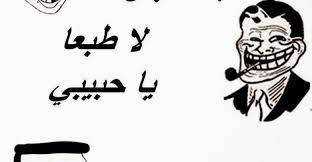 لا طبعا
يا حبيبي